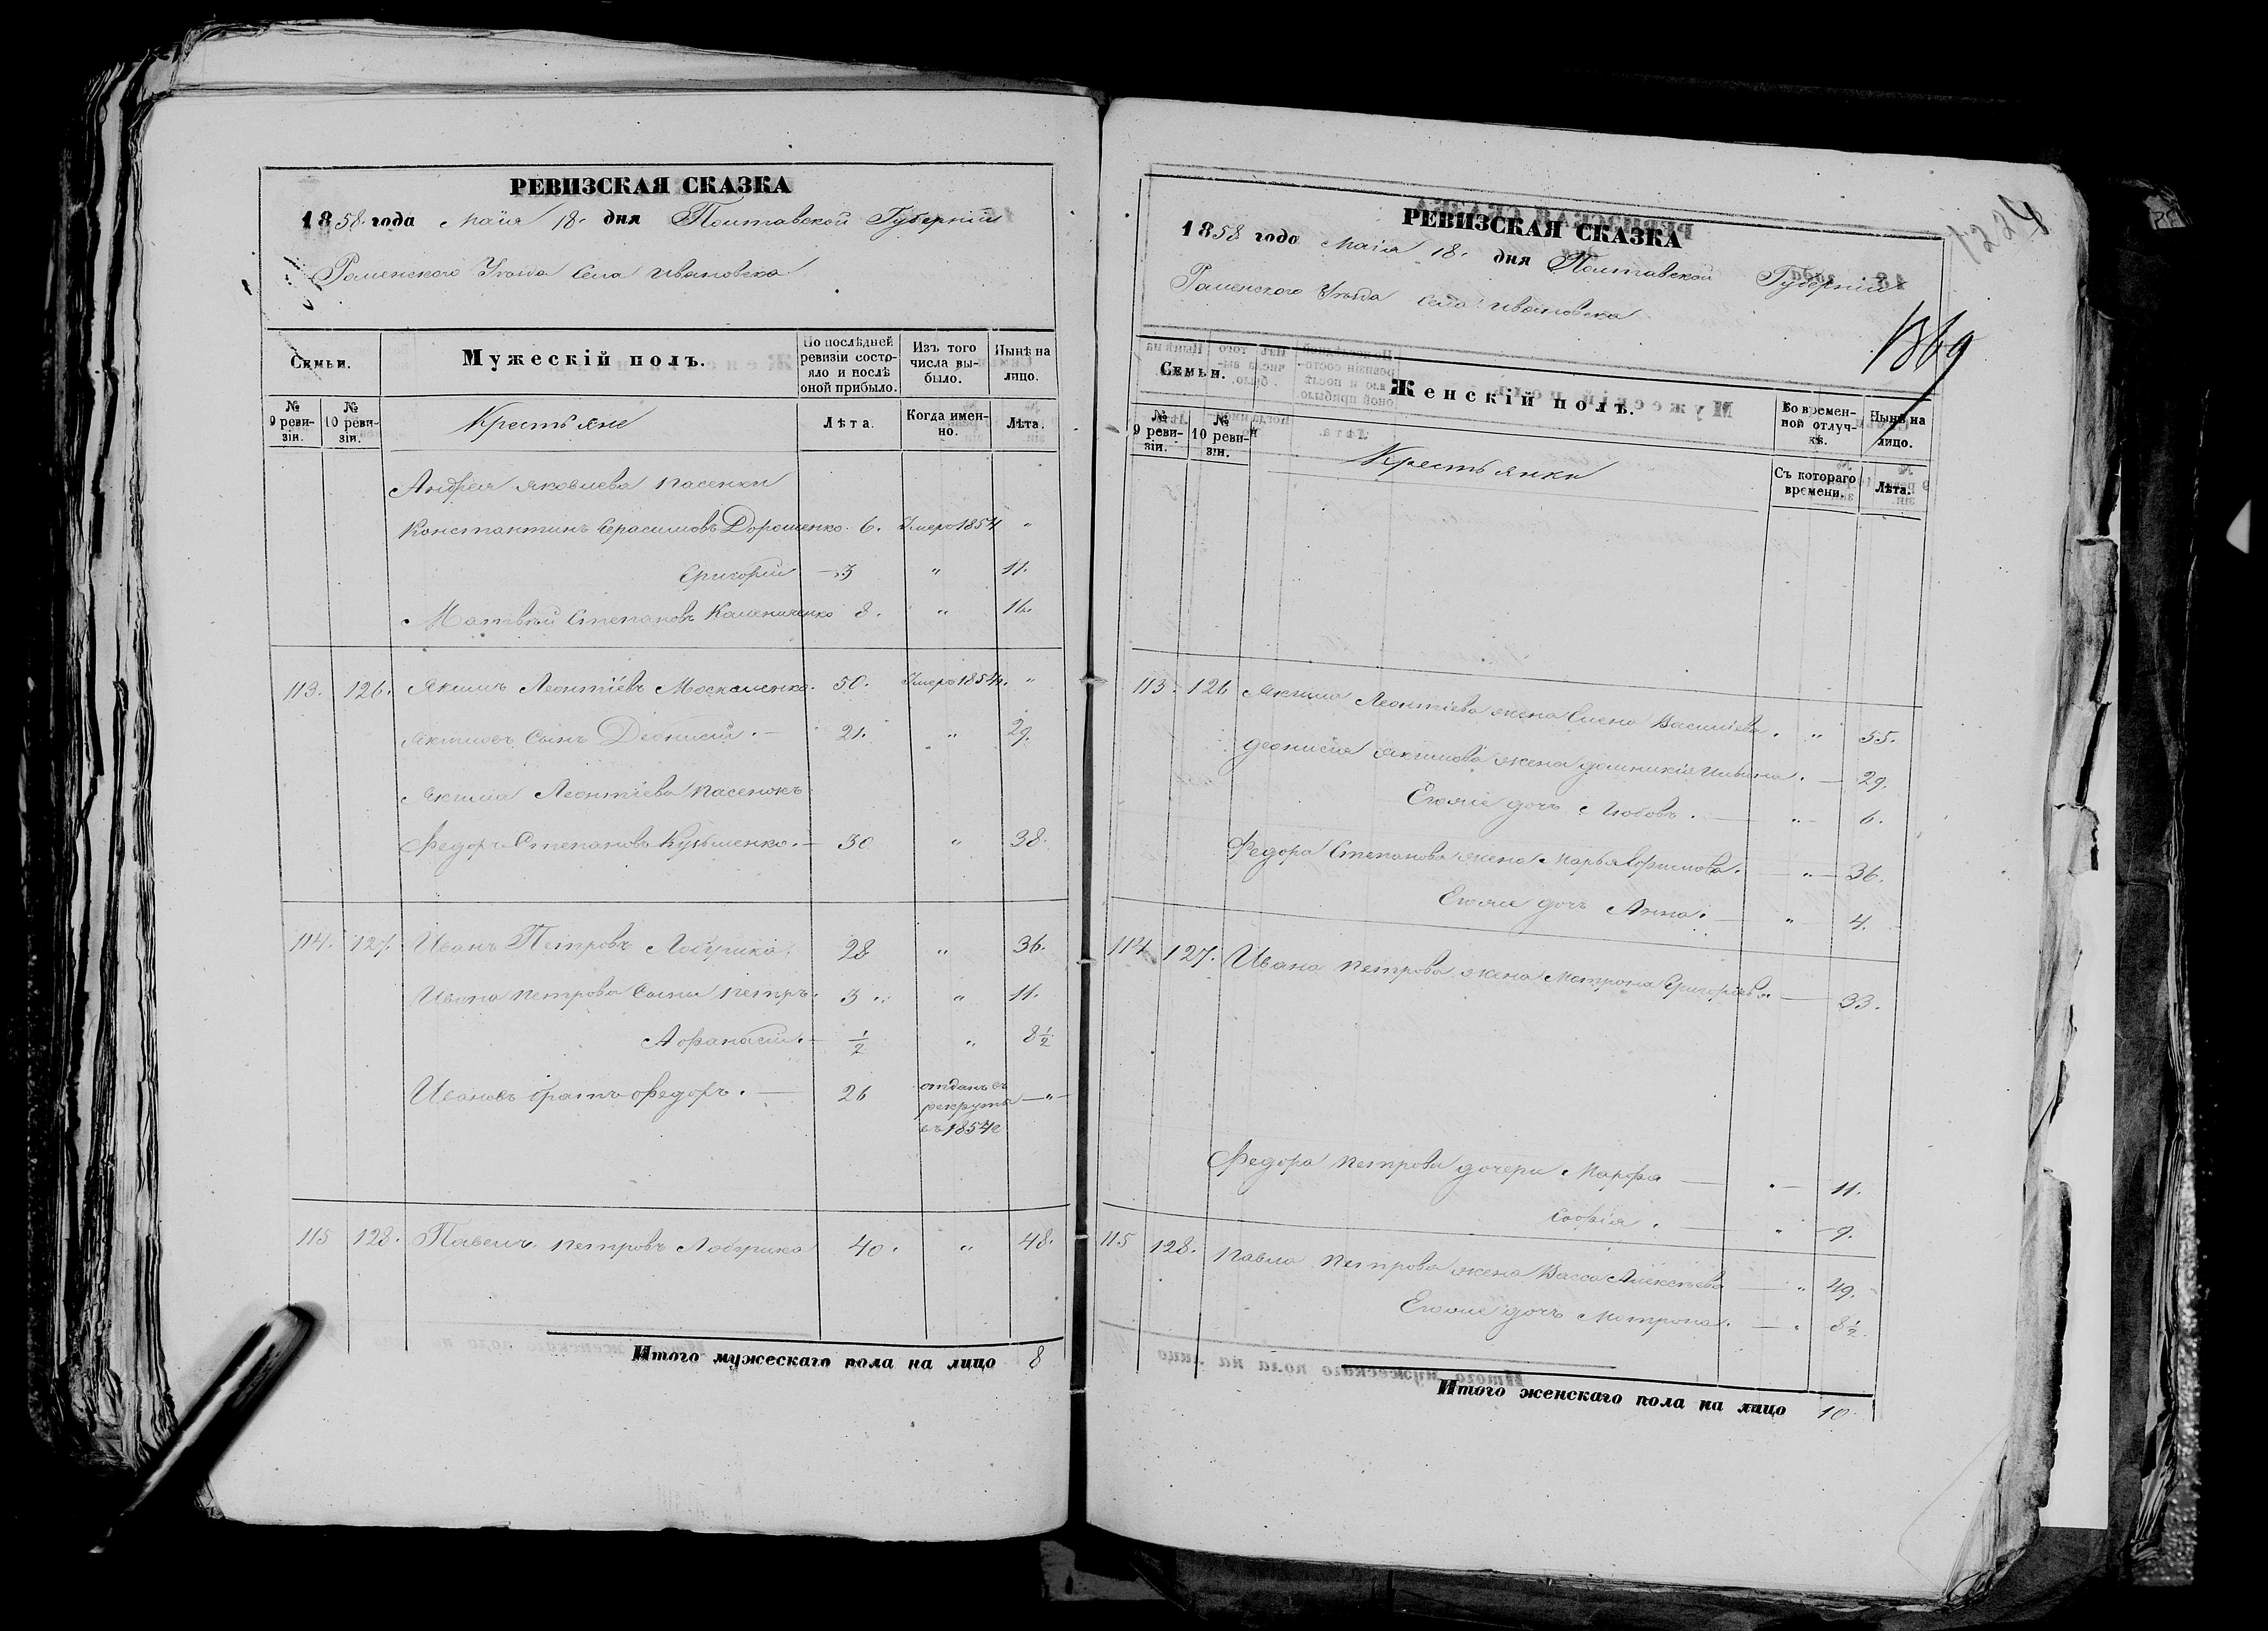 РЕВИЗСКАЯ СКАЗКА
1858 года Маія 18 дня Полтавской Губерніи
Роменского Уѣзда Села Ивановска
Семьи.
Мужескій полъ.
По послѣдней ревизіи состояло и послѣ оной прибыло.
Изъ того числа выбыло.
Нынѣ на лицо.
№ 9 ревизіи.
№ 10 ревизіи.
Крестьяне
Лѣта.
Когда именно.
Лѣта.
Андрея Яковлева пасенки
Константинъ Герасимовъ Дорошенко. 6. Умеръ 1854 "
Григорій — 3 " 11.
Матвѣй Степановъ Камениченко 8. " 16.
113. 126. Якимъ Леонтіевъ Москаленко. 50. Умеръ 1854. "
Якимовъ Сынъ Діонисій. — 21. " 29.
Якима Леонтіева пасенокъ
Федоръ Степановъ Кузьменко. — 30 " 38.
114. 127. Иванъ Петровъ Лобурика. 28 " 36.
Ивана Петрова Сыны Петръ. 3 " 11.
Афанасій. — 1/2 " 8 1/2
Ивановъ братъ Федоръ. — 26 отданъ въ рекруты въ 1854 г — " —
115 128. Павелъ Петровъ Лобурика 40. " 48.
Итого мужескаго пола на лицо 8
1224
1369
РЕВИЗСКАЯ СКАЗКА
1858 года Маія 18. дня Полтавской Губерніи
Роменского Уѣзда Села Ивановска
Семьи.
Женскій полъ.
Во временной отлучкѣ.
Нынѣ на лицо.
№ 9 ревизіи.
№ 10 ревизіи.
Крестьянки
Съ котораго времени.
Лѣта.
113. 126 Якима Леонтіева жена Елена Василіева. " 55.
Деонисія Якимова жена Домникія Ильина. — 29.
Егоже дочь Любовь. — " — 6.
Федора Степанова жена Марья Ефимова. — " — 36.
Егоже дочь Анна. — " — 4.
114 127. Ивана Петрова жена Матрона Григоріева. — 33.
Федора Петрова дочери Марфа — " — 11.
Софія. — " — 9.
115 128. Павла Петрова жена Васса Алексѣева — " 49.
Егоже дочь Матрона. — " 8 1/2.
Итого женскаго пола на лицо 10